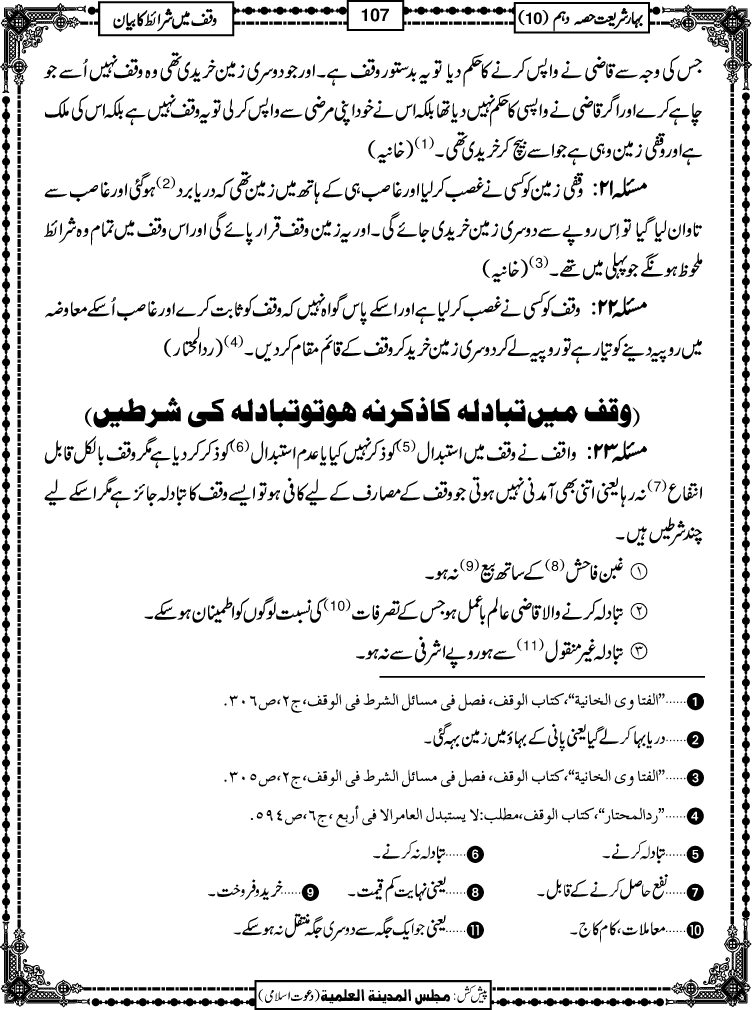 بہارِ شریعت حصہ دہم (10)
107
وقف میں شرائط کا بیان
جس کی وجہ سے قاضی نے واپس کرنے کا حکم دیا تو یہ بدستور وقف ہے۔ اور جو دوسری زمین خریدی تھی وہ وقف نہیں اُسے جو
چاہے کرے اور اگر قاضی نے واپسی کا حکم نہیں دیا تھا بلکہ اس نے خود اپنی مرضی سے واپس کر لی تو یہ وقف نہیں ہے بلکہ اس کی ملک
ہے اور وقفی زمین وہی ہے جو اسے بیچ کر خریدی تھی۔(1) (خانیہ)
مسئلہ ۲۱: وقفی زمین کو کسی نے غصب کر لیا اور غاصب ہی کے ہاتھ میں زمین تھی کہ دریا برد(2) ہو گئی اور غاصب سے
تاوان لیا گیا تو اِس روپے سے دوسری زمین خریدی جائے گی۔ اور یہ زمین وقف قرار پائے گی اور اس وقف میں تمام وہ شرائط
ملحوظ ہونگے جو پہلی میں تھے۔(3) (خانیہ)
مسئلہ ۲۲: وقف کو کسی نے غصب کر لیا ہے اور اسکے پاس گواہ نہیں کہ وقف کو ثابت کرے اور غاصب اُسکے معاوضہ
میں روپیہ دینے کو تیار ہے تو روپیہ لے کر دوسری زمین خرید کر وقف کے قائم مقام کر دیں۔(4) (ردالمحتار)
(وقف میں تبادلہ کا ذکر نہ ہو تو تبادلہ کی شرطیں)
مسئلہ ۲۳: واقف نے وقف میں استبدال(5) کو ذکر نہیں کیا یا عدم استبدال(6) کو ذکر کر دیا ہے مگر وقف بالکل قابل
انتفاع(7) نہ رہا یعنی اتنی بھی آمدنی نہیں ہوتی جو وقف کے مصارف کے لیے کافی ہو تو ایسے وقف کا تبادلہ جائز ہے مگر اسکے لیے
چند شرطیں ہیں۔
① غبن فاحش(8) کے ساتھ بیع(9) نہ ہو۔
② تبادلہ کرنے والا قاضی عالم باعمل ہو جس کے تصرفات(10) کی نسبت لوگوں کو اطمینان ہو سکے۔
③ تبادلہ غیر منقول(11) سے ہو روپے اشرفی سے نہ ہو۔
❶......"الفتاوی الخانية"، کتاب الوقف، فصل فی مسائل الشرط فی الوقف، ج۲، ص۳۰۶.
❷......دریا بہا کر لے گیا یعنی پانی کے بہاؤ میں زمین بہہ گئی۔
❸......"الفتاوی الخانية"، کتاب الوقف، فصل فی مسائل الشرط فی الوقف، ج۲، ص۳۰۵.
❹......"ردالمحتار"، کتاب الوقف، مطلب: لا يستبدل العامر الا فی أربع، ج۶، ص۵۹۴.
❺......تبادلہ کرنے۔ ❻......تبادلہ نہ کرنے۔
❼......نفع حاصل کرنے کے قابل۔ ❽......یعنی نہایت کم قیمت۔ ❾......خرید و فروخت۔
❿......معاملات، کام کاج۔ ⓫......یعنی جو ایک جگہ سے دوسری جگہ منتقل نہ ہو سکے۔
پیش کش: مجلس المدینة العلمية (دعوت اسلامی)